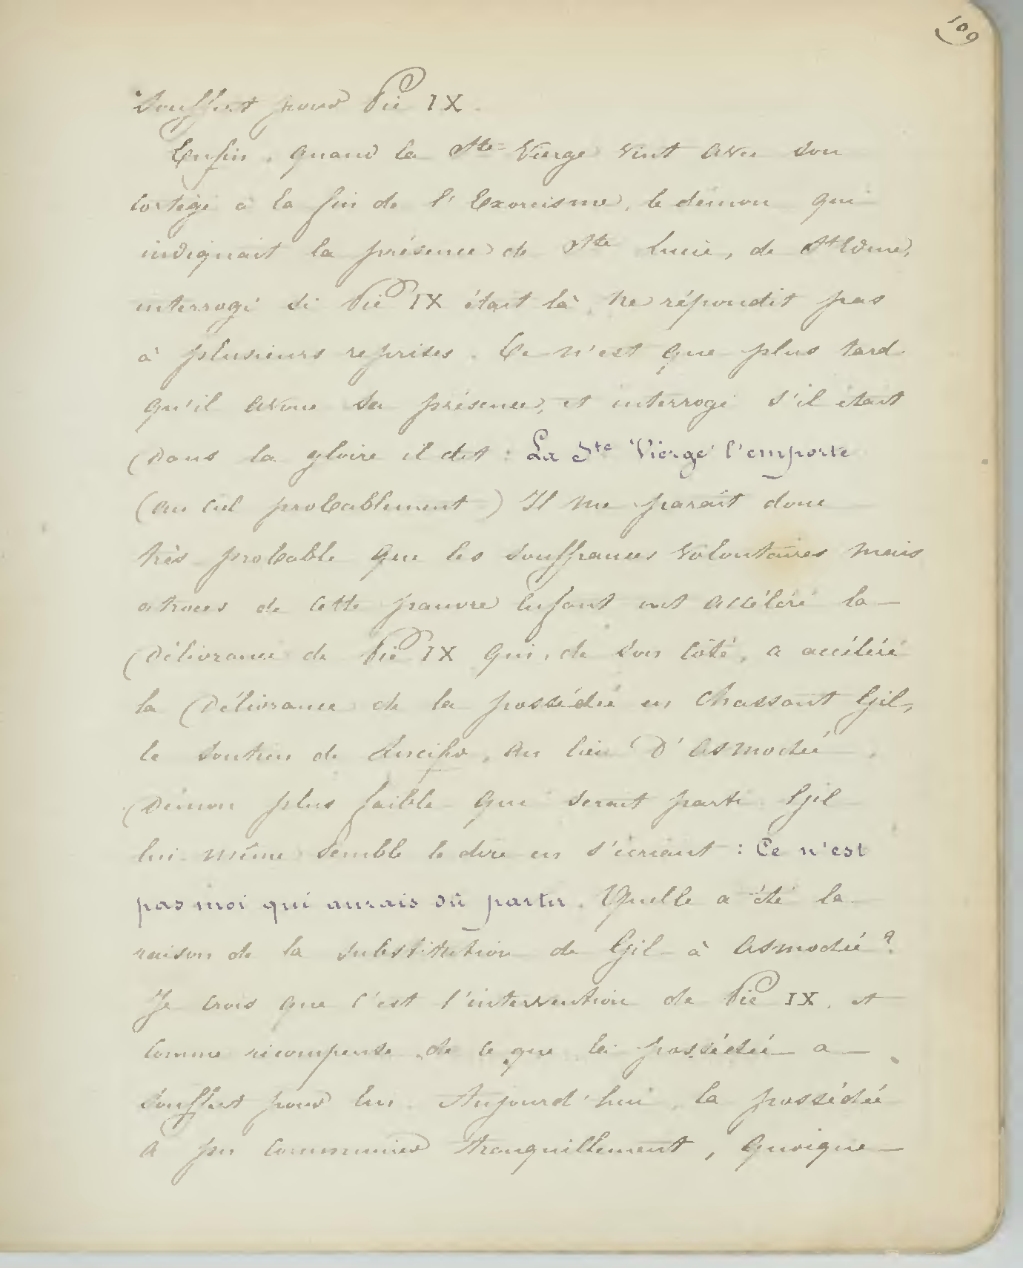 109
Souffert pour Pie IX.
Enfin, quand la Ste Vierge vint avec son
cortège à la fin de l'Exorcisme, le démon qui
indiquait la présence de Ste Lucie, de St Edme,
interrogé si Pie IX était là, ne répondit pas
à plusieurs reprises. Ce n'est que plus tard
qu'il avoue sa présence, et interrogé s'il était
dans la gloire il dit : La Ste Vierge l'emporte
(au ciel probablement) Il me paraît donc
très probable que les souffrances volontaires mais
atroces de cette pauvre enfant ont accéléré la
délivrance de Pie IX qui, de son côté, a accéléré
la délivrance de la possédée en chassant Gil,
le soutien de Lucifer, au lieu d'Asmodée,
démon plus faible que serait parti. Gil
lui-même semble le dire en s'écriant : Ce n'est
pas moi qui aurais dû partir. Quelle a été la
raison de la substitution de Gil à Asmodée ?
Je crois que c'est l'intervention de Pie IX, et
comme récompense de ce que la possédée a
souffert pour lui. Aujourd'hui, la possédée
a pu communier tranquillement, quoique